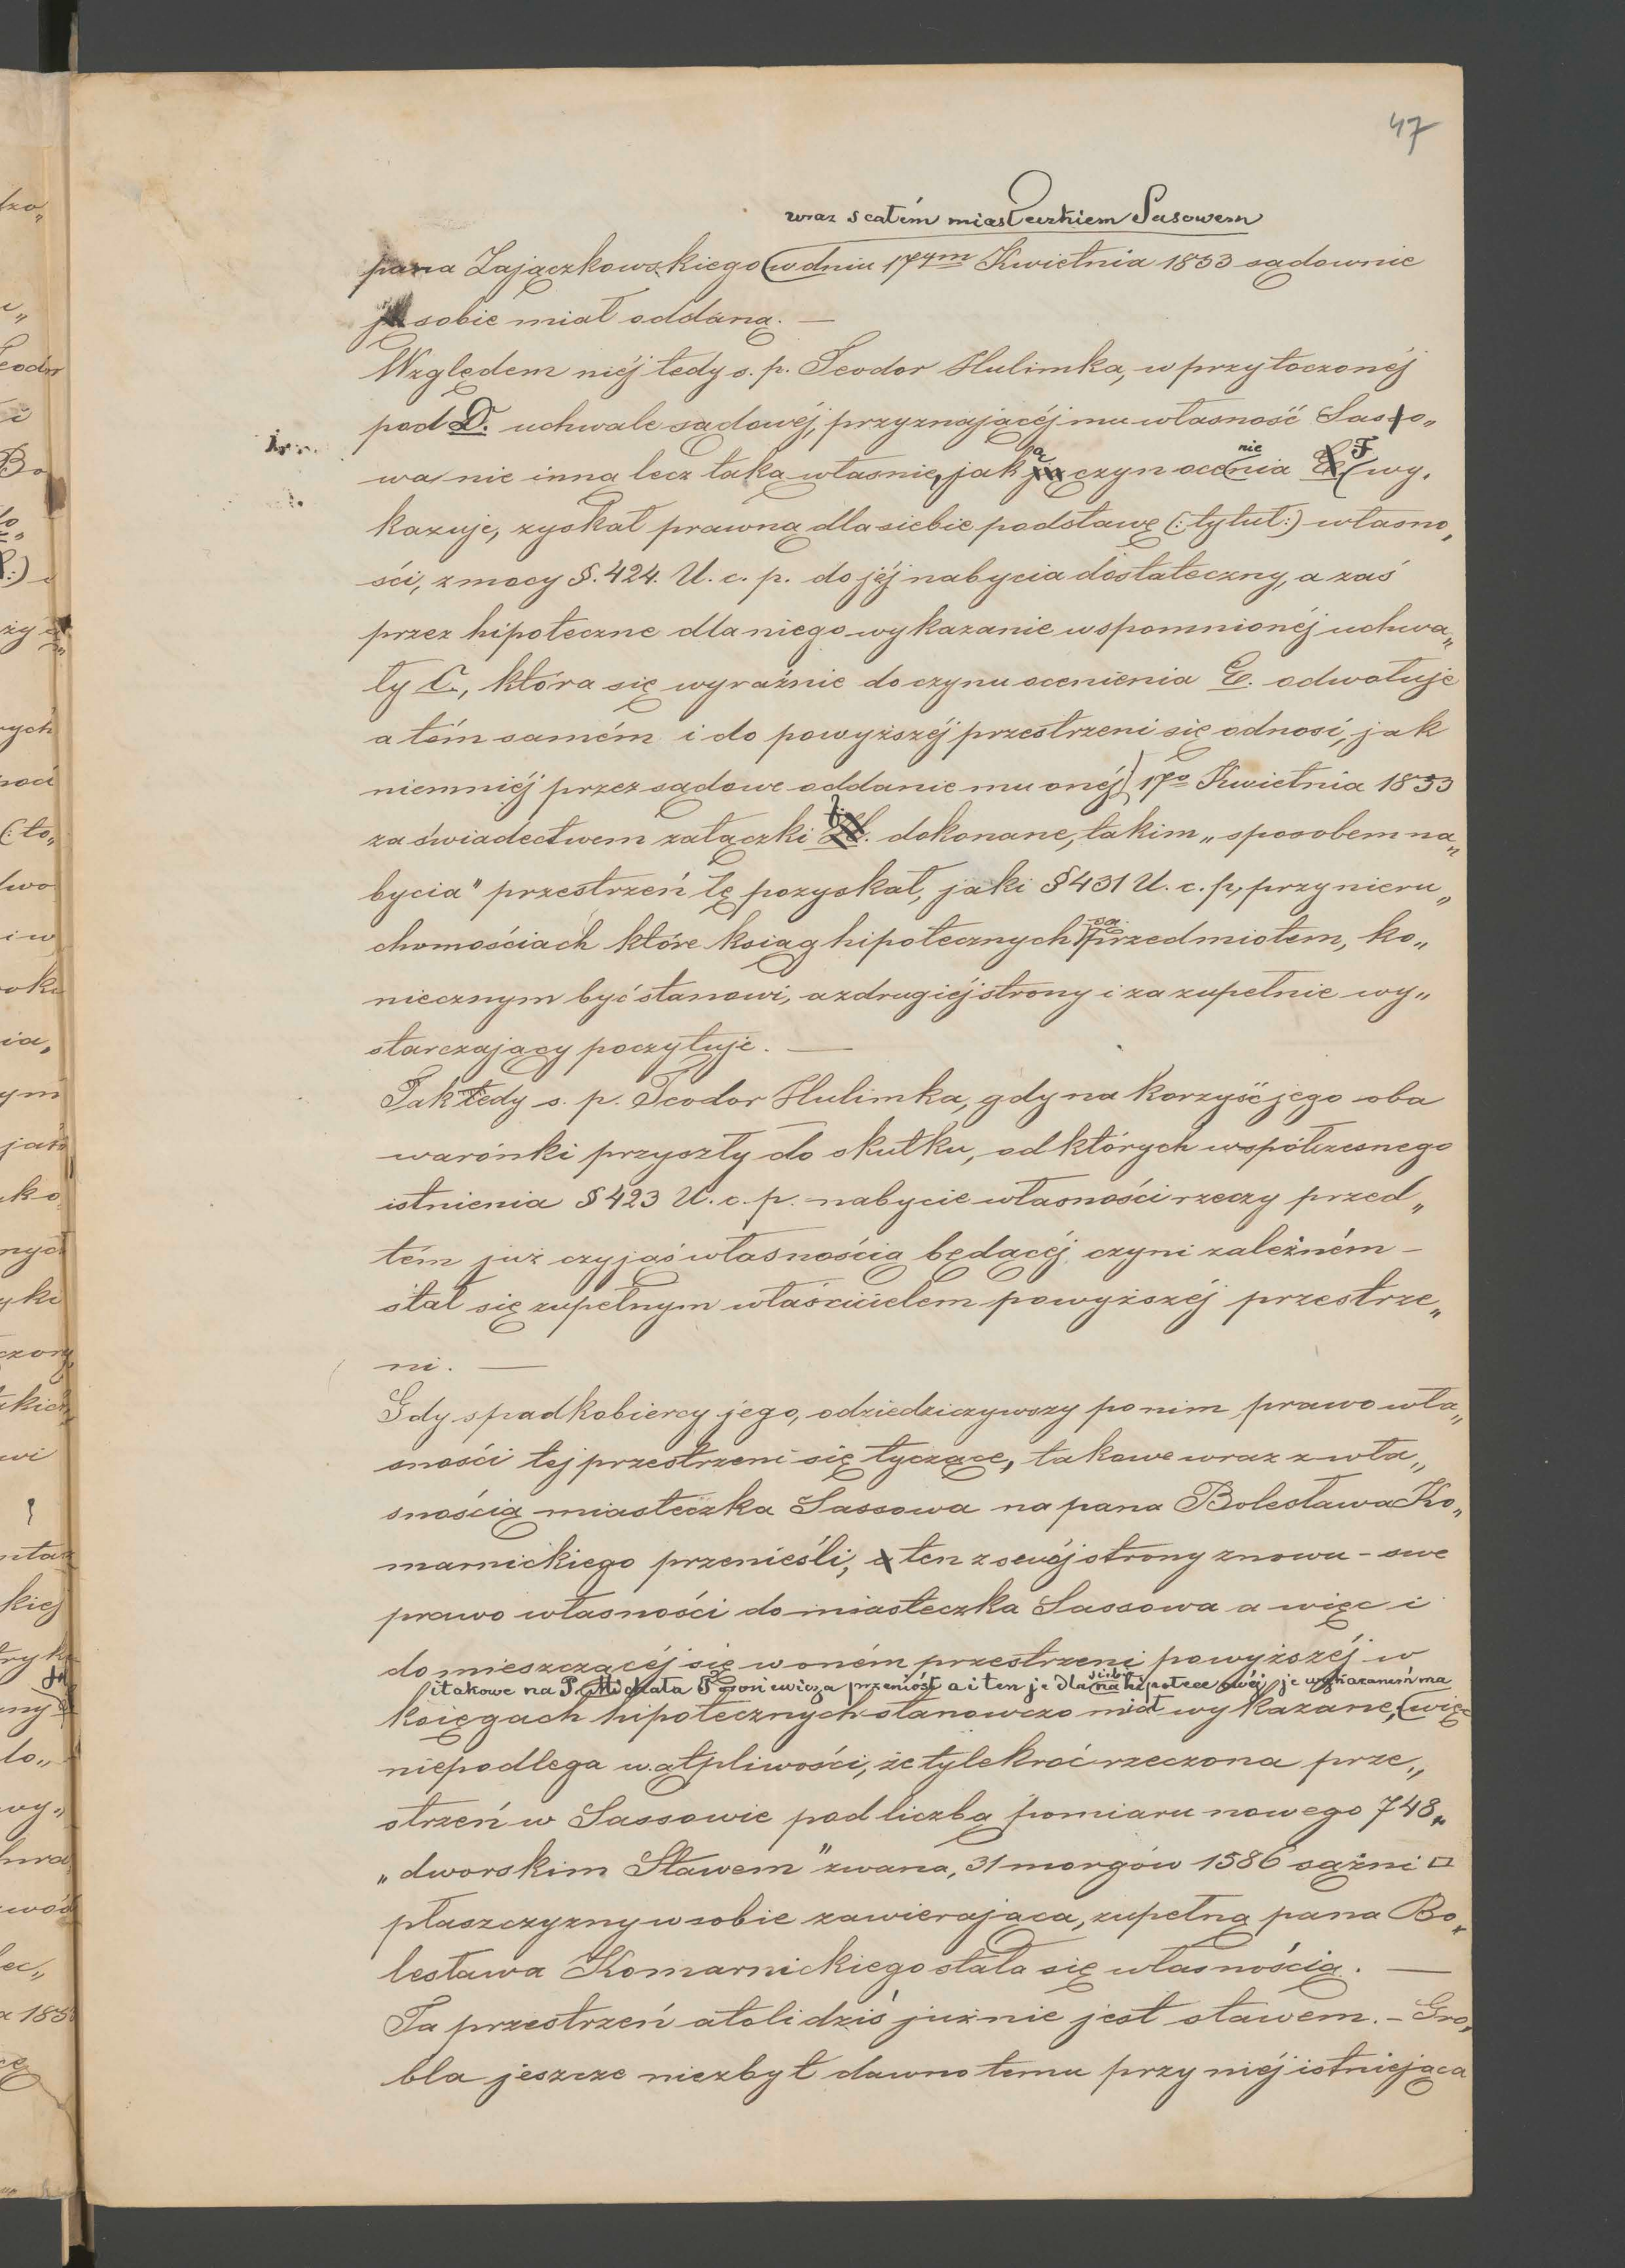 47
wraz z całém miasteczkiem Sasowem
pana Zajączkowskiego w dniu 17ym Kwietnia 1853 sądownie
sobie miał oddaną. —
Względem niéj tedy s. p. Teodor Hulimka, w przytoczonéj
pod D. uchwale sądowéj, przyznającéj mu własność Sasso„
wa nie inną lecz taką własnie, jaką czyn ocenienia F wy„
kazuje, zyskał prawną dla siebie podstawę (: tytuł :) własno„
ści, z mocy §. 424. U. c. p. do jéj nabycia dostateczny, a zaś
przez hipoteczne dla niego wykazanie wspomnionéj uchwa„
ły C., która się wyraźnie do czynu ocenienia E. odwołuje
a tém samém i do powyższéj przestrzeni się odnosi, jak
niemniéj przez sądowe oddanie mu onéj 17o Kwietnia 1853
za świadectwem załączki dokonane, takim „sposobem na„
bycia" przestrzeń tę pozyskał, jaki § 431 U. c. p, przy nieru„
chomościach które ksiąg hipotecznych są przedmiotem, ko„
niecznym być stanowi, a z drugiéj strony i za zupełnie wy„
starczający poczytuje. —
Tak tedy s. p. Teodor Hulimka, gdy na korzyść jego oba
warónki przyszły do skutku, od których współczesnego
istnienia § 423 U. c. p. nabycie własności rzeczy przed„
tém już czyjaś własnością będącéj czyni zależném –
stał się zupełnym właścicielem powyższéj przestrze„
ni. —
Gdy spadkobiercy jego, odziedziczywszy po nim prawo wła„
sności tej przestrzeni się tyczące, takowe wraz z wła„
snością miasteczka Sassowa na pana Bolesława Ko„
marnickiego przenieśli, a ten z swéj strony znowu – swe
prawo własności do miasteczka Sassowa a więc i
do mieszczącéj się w oném przestrzeni powyższéj w
i takowe na P. Michała przeniósł a i ten je dla siebie na hipotece swéj je wykazaném ma
księgach hipotecznych stanowczo miał wykazane, więc
niepodlega wątpliwości, że tylekroć rzeczona prze„
strzeń w Sassowie pod liczbą pomiaru nowego 748„
„dworskim Stawem" zwana, 31 morgów 1586 sążni □
płaszczyzny w sobie zawierająca, zupełną pana Bo„
lesława Komarnickiego stała się własnością. —
Ta przestrzeń atoli dziś już nie jest stawem. – Gro„
bla jeszcze niezbyt dawno temu przy niéj istniejąca